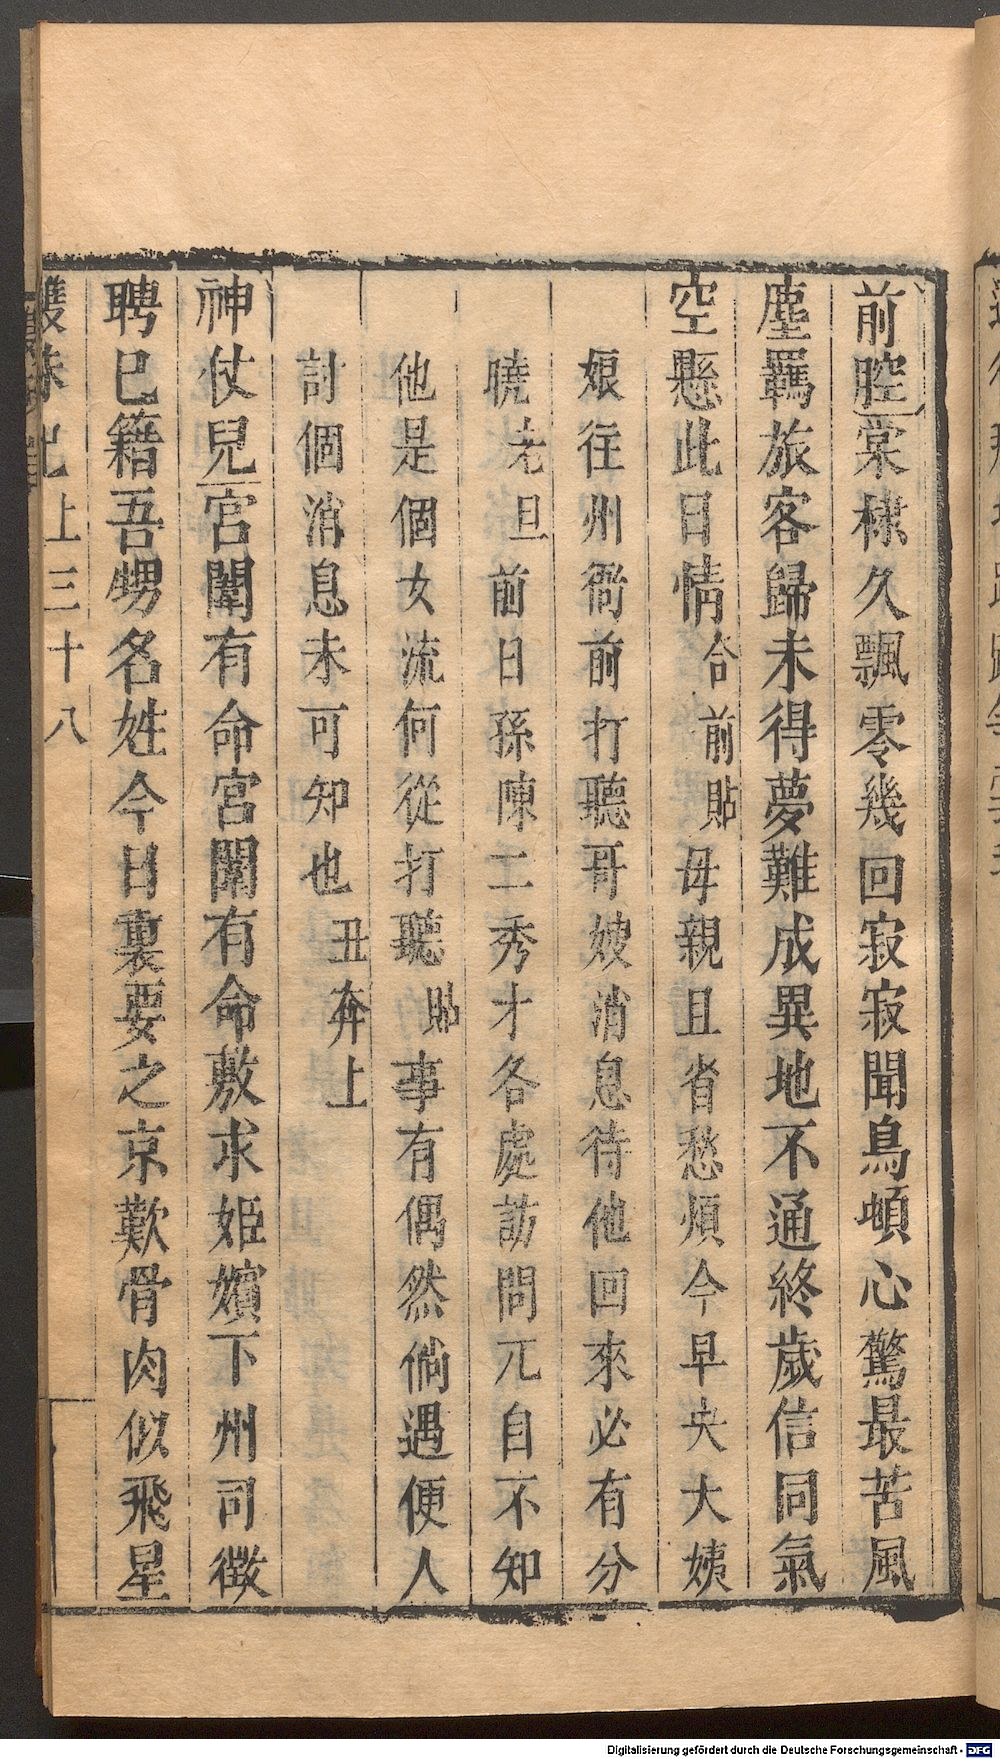 前腔棠棣久飄零幾回寂寂聞鳥頓心驚最苦風
塵羈旅客歸未得夢難成異地不通終歲信同氣
空懸此日情合前貼毋親且省愁煩今早央大姨
娘往州衙前打聽哥嫂消息待他回來必有分
曉老旦前日孫陳二秀才各處訪問兀自不知
他是個女流何從打聽貼事有偶然倘遇便人
討個消息未可知也丑奔上
神仗兒宮闈有命宮闈有命敷求姬嬪下州司徵
聘已籍吾甥名姓今日裏要之京歎骨肉似飛星
上三十八
Digitalisierung gefördert durch die Deutsche Forschungsgemeinschaft - DFG